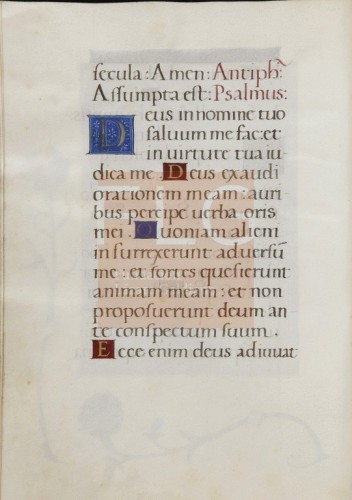 secula: Amen: Antiphā
Assumpta est: Psalmus:
Deus in nomine tuo
saluum me fac: et
in uirtute tua iu-
dica me. Deus exaudi
orationem meam: auri
bus percipe uerba oris
mei. Quoniam alieni
insurrexerunt aduersū
me: et fortes quesierunt
animam meam: et non
proposuerunt deum an
te conspectum suum.
Ecce enim deus adiuuat
FLG